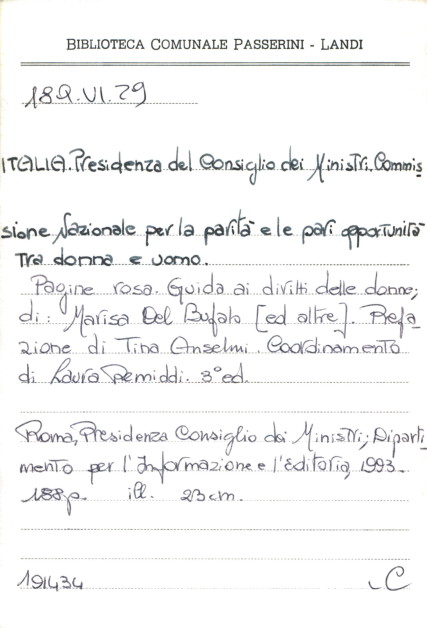 BIBLIOTECA COMUNALE PASSERINI - LANDI
18Q.VI.29
ITALIA. Presidenza del Consiglio dei Ministri. Commis
sione Nazionale per la parità e le pari opportunità
Tra donna e uomo.
Pagine rosa. Guida ai diritti delle donne;
di: Marisa Del Bufalo [ed altre]. Prefa
zione di Tina Anselmi. Coordinamento
di Laura Remiddi. 3° ed.
Roma, Presidenza Consiglio dei Ministri; Diparti
mento per l'Informazione e l'Editoria, 1993.
188p. ill. 23cm.
191434 C